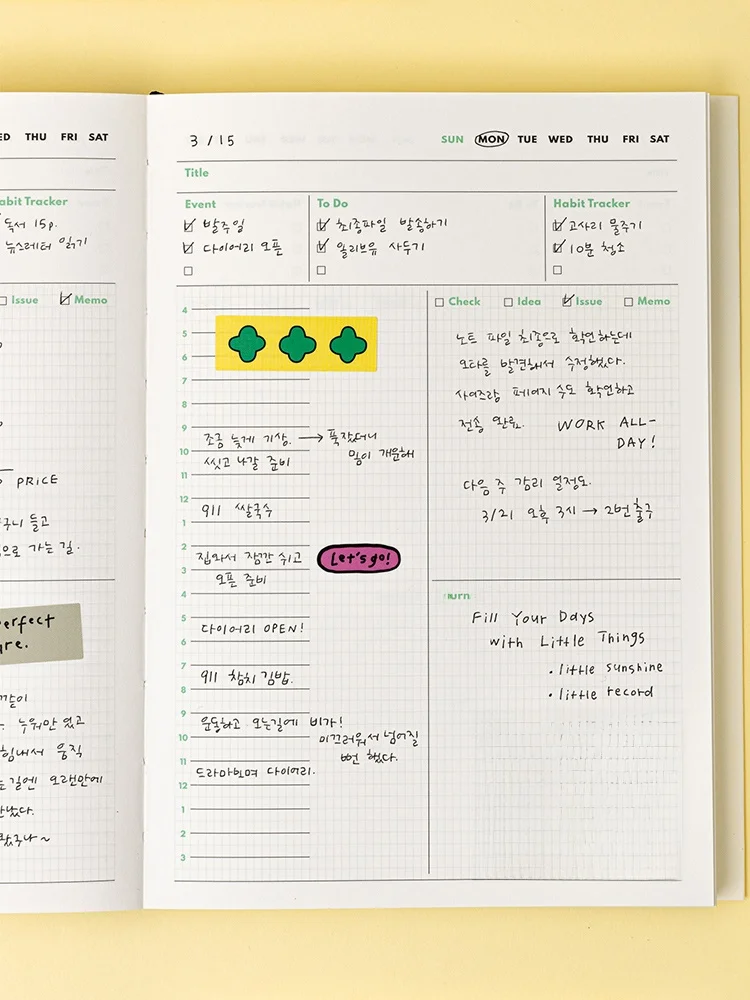 THU FRI SAT
abit Tracker
독서 15p.
뉴스레터 읽기
Issue Memo
PRICE
구니 들고
으로 가는 길.
erfect
re.
같이
누워만 있고
힘내서 움직
는길엔 오랜만에
3 / 15
SUN MON TUE WED THU FRI SAT
Title
Event
발주일
다이어리 오픈
To Do
최종파일 발송하기
올리브유 사두기
Habit Tracker
고사리 물주기
10분 청소
4
5
6
7
8
9
조금 늦게 기상. → 푹잤더니
몸이 개운해
10
씻고 나갈 준비
11
12
911 쌀국수
1
2
집와서 잠깐 쉬고 Let's go!
3
오픈 준비
4
5
다이어리 OPEN!
6
7
911 참치김밥.
8
9
운동하고 오는길에 비가!
10
미끄러워서 넘어질
뻔 했다.
11
드라마보며 다이어리.
12
1
2
3
Check Idea Issue Memo
노트 파일 최종으로 확인하는데
오타를 발견해서 수정했다.
사이즈랑 페이지 수도 확인하고
전송 완료. WORK ALL-
DAY!
다음 주 감리 일정도.
3/21 오후 3시 → 2번 출구
Fill Your Days
with Little Things
• little sunshine
• little record